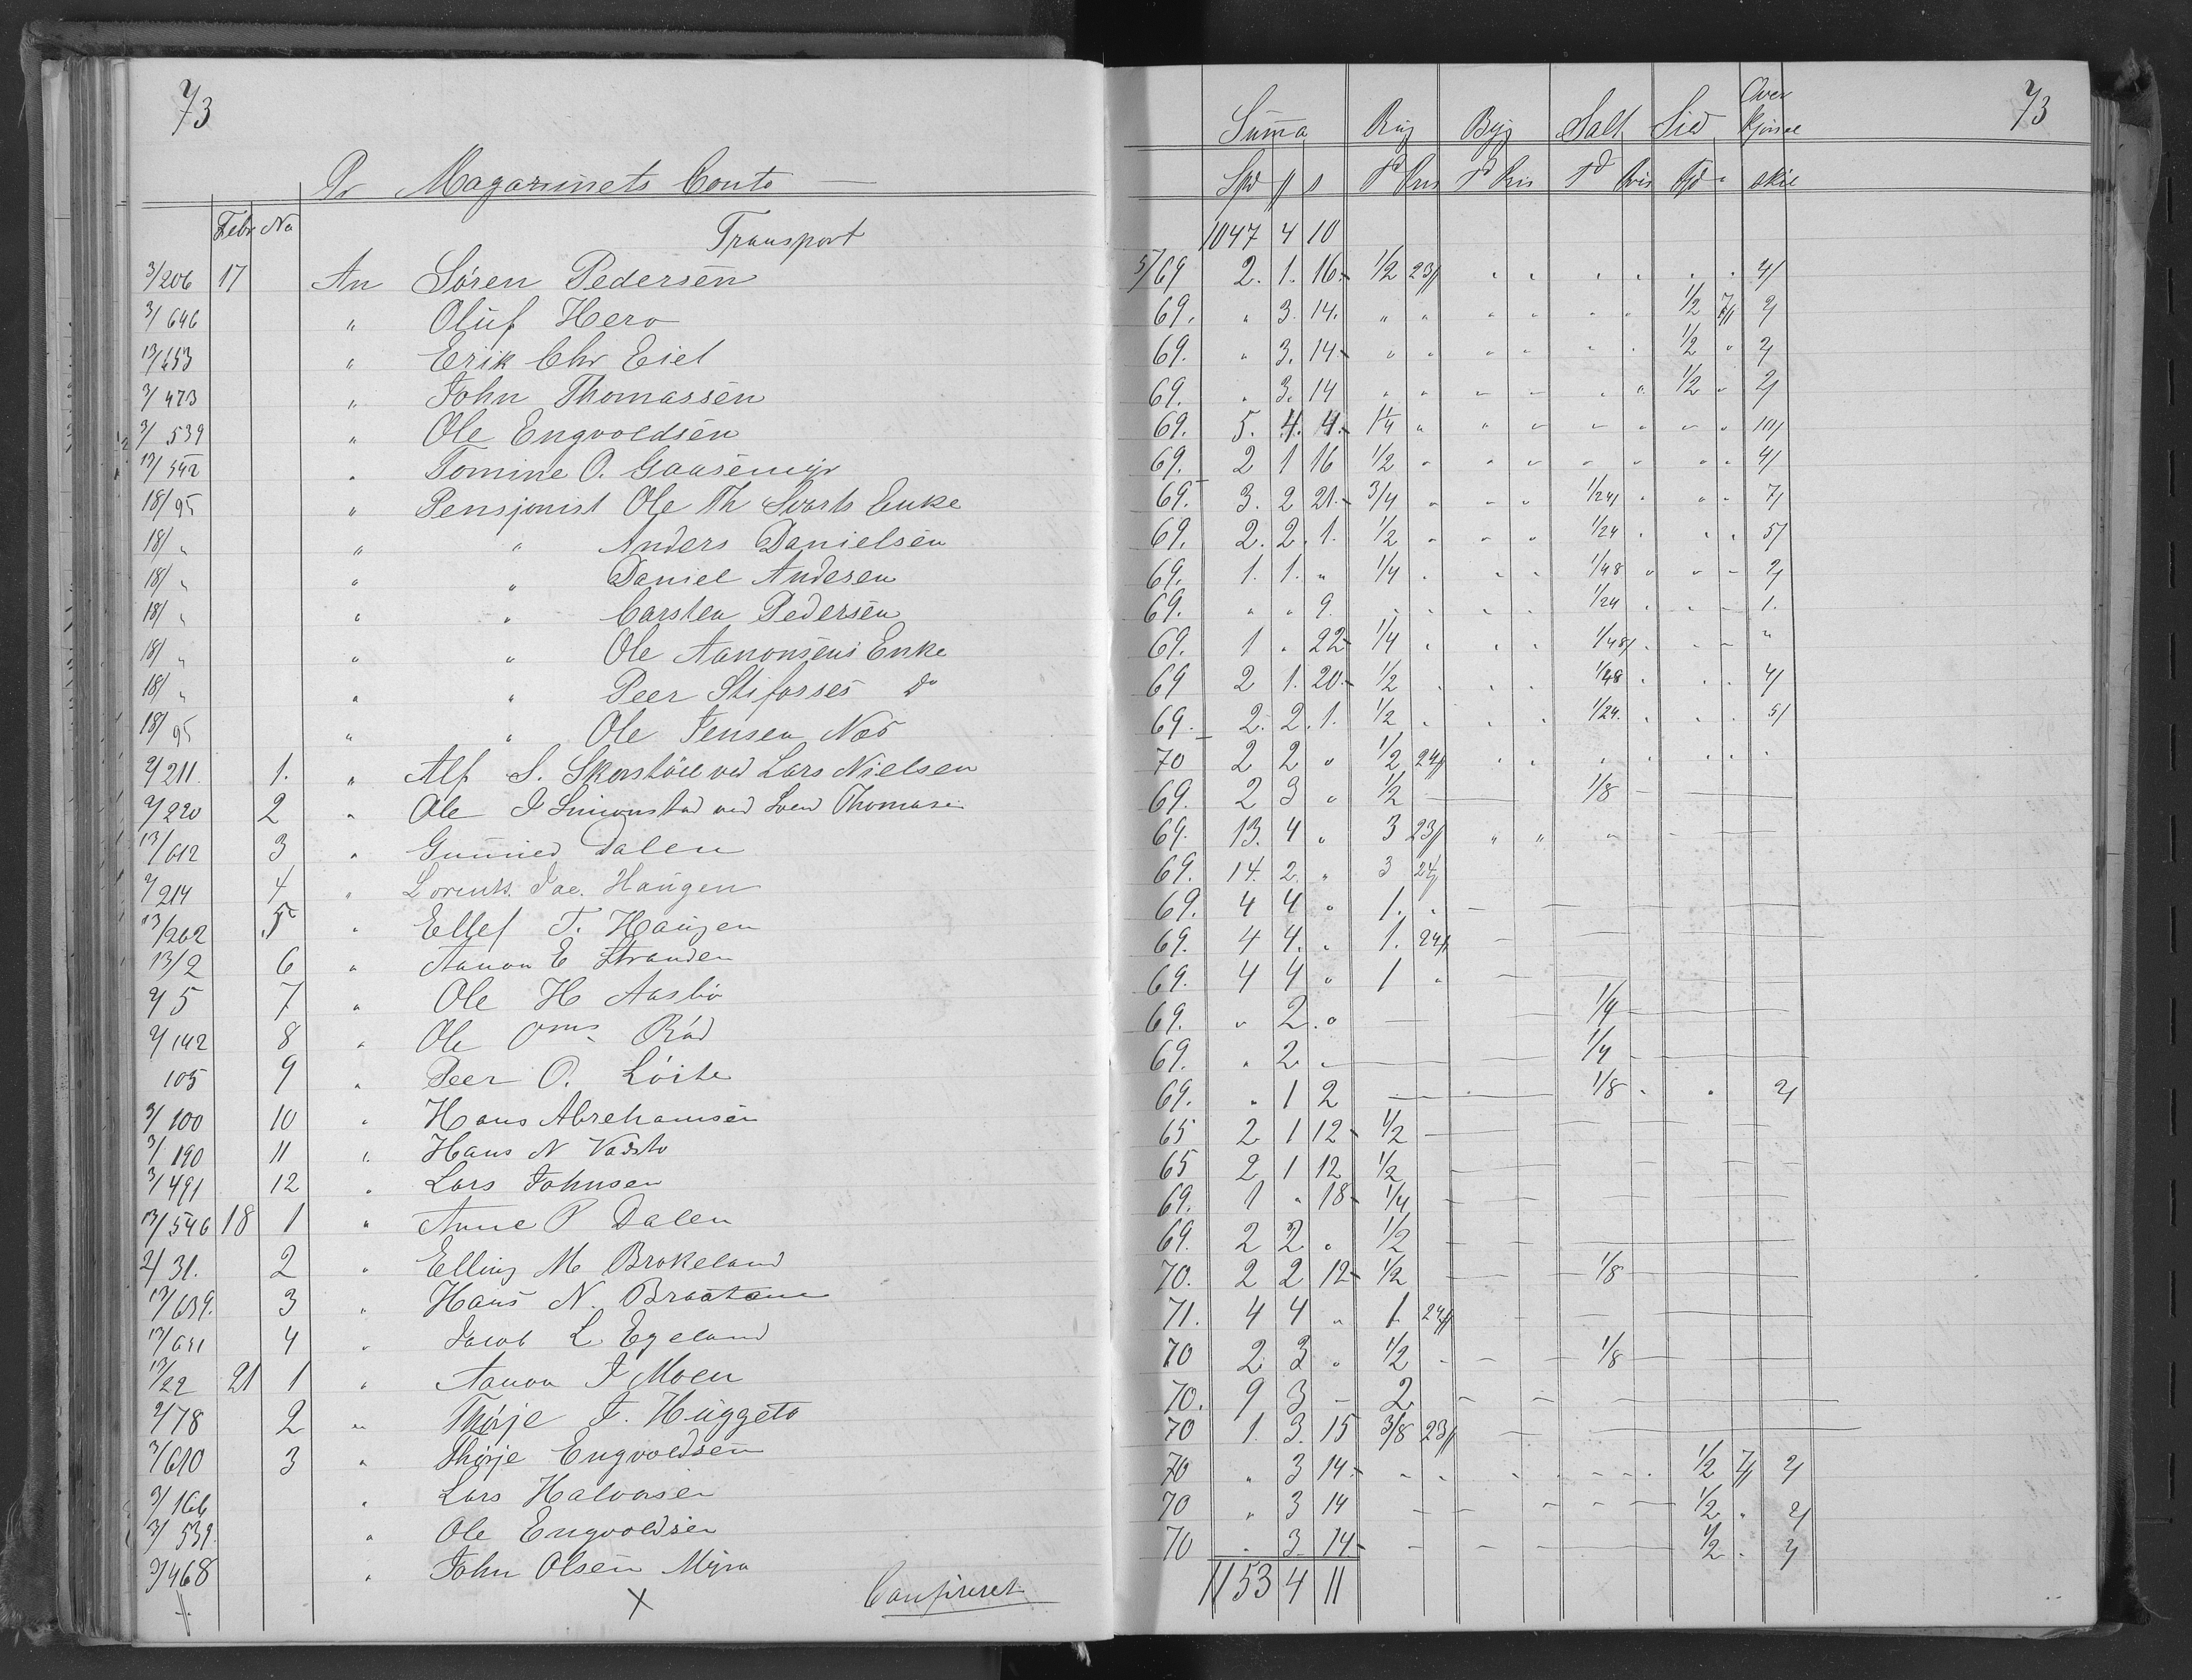 73
Pr Magazinets Conto
Febr No
Transport
3/206 17 An Sören Pedersen
3/646 " Oluf Hero
13/653 " Erik Chr Eiet
3/473 " John Thomassen
3/539 " Ole Engvoldsen
13/542 " Tomine O. Gaasemyr
18/95 " Pensjonist Ole Th Svarts Enke
18/ " " " Anders Danielsen
18/ " " " Daniel Andersen
18/ " " " Carsten Pedersen
18/ " " " Ole Aanonsens Enke
18/ " " " Peer Stifosses do
18/95 " " Ole Jensen Næs
2/211. 1. " Alf S. Skorstöel ved Lars Nielsen
2/220 2 " Ole J Simonstad ved Sven Thomasen
13/612 3 " Gunnied Dalen
2/214 4 " Lorents Jac. Haugen
13/202 5 " Ellef T. Haugen
13/2 6 " Aanon E Stranden
2/5 7 " Ole H Aasbö
2/142 8 " Ole Oms Rád
105 9 " Peer O. Löite
3/100 10 " Hans Abrehamsen
3/190 11 " Hans N
3/491 12 " Lars Johnsen
13/546 18 1 " Anne P Dalen
2/31. 2 " Elling M Brokeland
13/639. 3 " Hans N. Braatane
13/631 4 " Jacob L. Egeland
13/22 21 1 " Aanon J Moen
2/78 2 " Thorje J. Huggeto
3/610 3 " Thorje Engvoldsen
3/166 " Lars Halvorsen
3/539. " Ole Engvoldsen
3/468 " John Olsen Myra
Confireret
73
Summa Rug Byg Salt Sild Over kjörsel
Spd ƒ s Td Pris Td Pris Td Pris Fjd " skil
1047 4 10
5/69 2. 1. 16. 1/2 23/ 4/
69. " 3. 14. 1/2 7/ 2/
69. " 3. 14 1/2 " 2/
69. " 3. 14 1/2 " 2/
69. 5. 4. 4. 1 1/4 " 10/
69. 2 1 16 1/2 4/
69. 3. 2 21. 3/4 1/24 7/
69. 2. 2. 1. 1/2 1/24 5/
69. 1. 1. " 1/4 1/48 2/
69. " " 9. 1/24 1.
69. 1 " 22 1/4 1/48 "
69 2 1. 20. 1/2 1/48 4/
69. 2. 2. 1. 1/2 1/24. 5/
70 2 2 " 1/2 24/
69. 2 3 " 1/2 1/8
69. 13. 4 " 3 23/
69. 14. 2. " 3 24/
69. 4 4 " 1. "
69. 4 4. " 1. 24/
69. 4 4 " 1 "
69. " 2. " 1/4
69. " 2. " 1/4
69. " 1 2 1/8 2/
65 2 1 12 1/2
65 2 1 12 1/2
69. 1 " 18 1/4
69. 2 2 " 1/2
70. 2 2 12 1/2 1/8
71. 4 4 " 1. 24/
70 2 3 " 1/2 1/8
70. 9 3 – 2
70 1. 3. 15 3/8 23/
70 " 3 14 1/2 7/ 2/
70 " 3 14 1/2 " 2/
70 " 3. 14 1/2 " 2/
1153 4 11